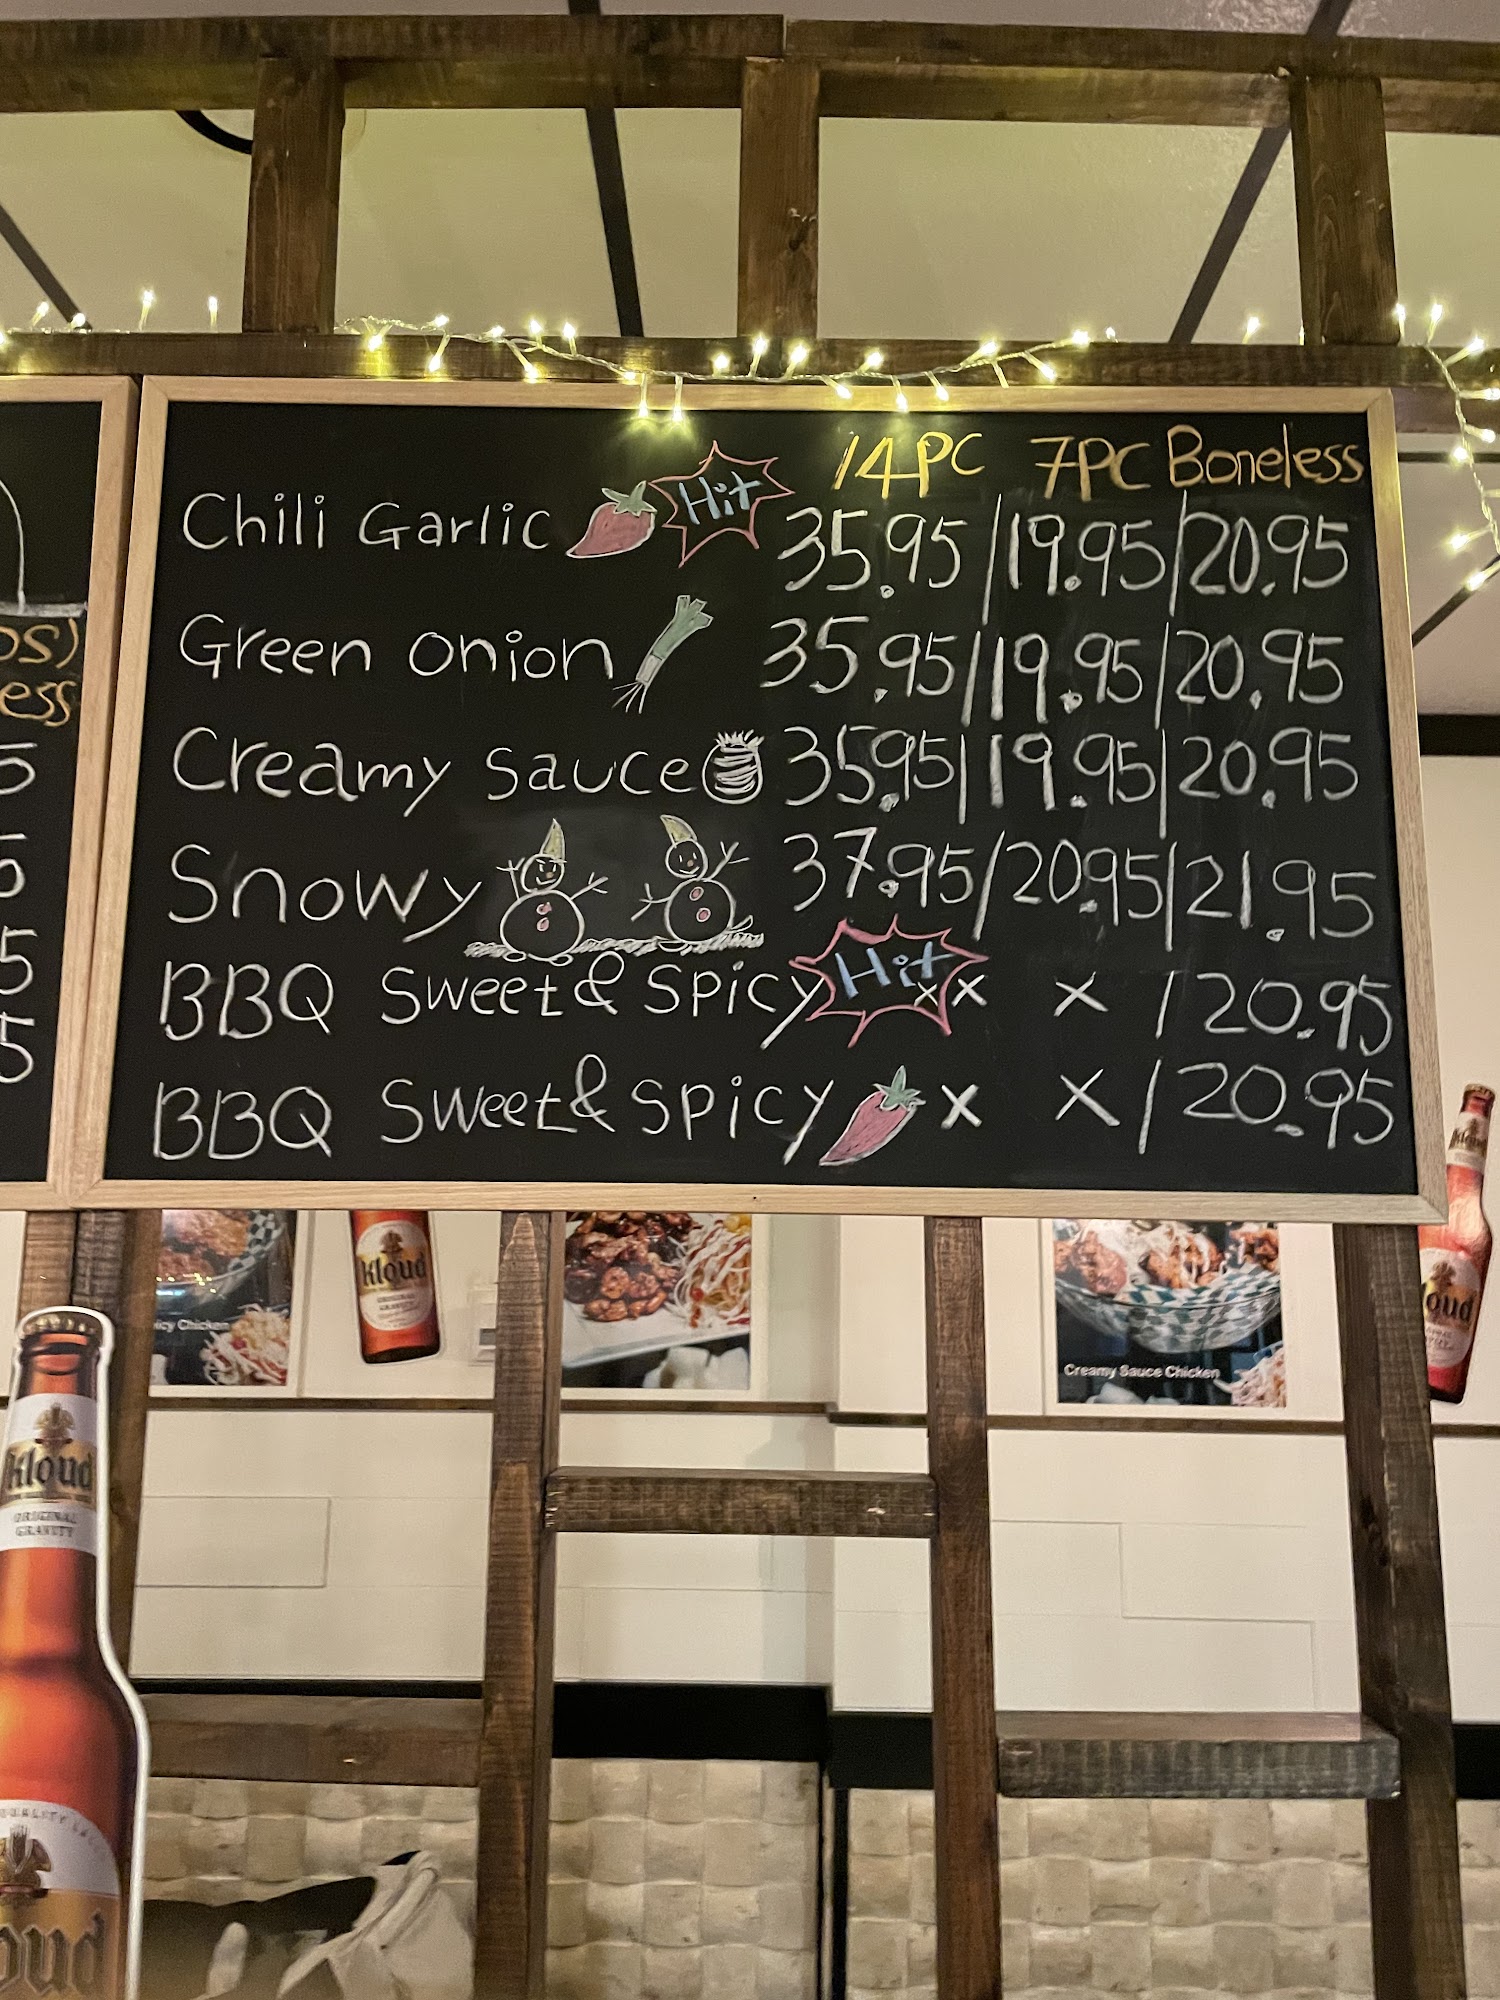 14PC 7PC Boneless
Chili Garlic Hit 35.95/19.95/20.95
Green onion 35.95/19.95/20.95
Creamy sauce 35.95/19.95/20.95
Snowy 37.95/20.95/21.95
BBQ Sweet & Spicy Hit x x x / 20.95
BBQ Sweet & Spicy x x / 20.95
os)
ess
5
5
5
5
icy Chicken
Kloud
ORIGINAL
GRAVITY
Creamy Sauce Chicken
Kloud
oud
Kloud
ORIGINAL
GRAVITY
oud